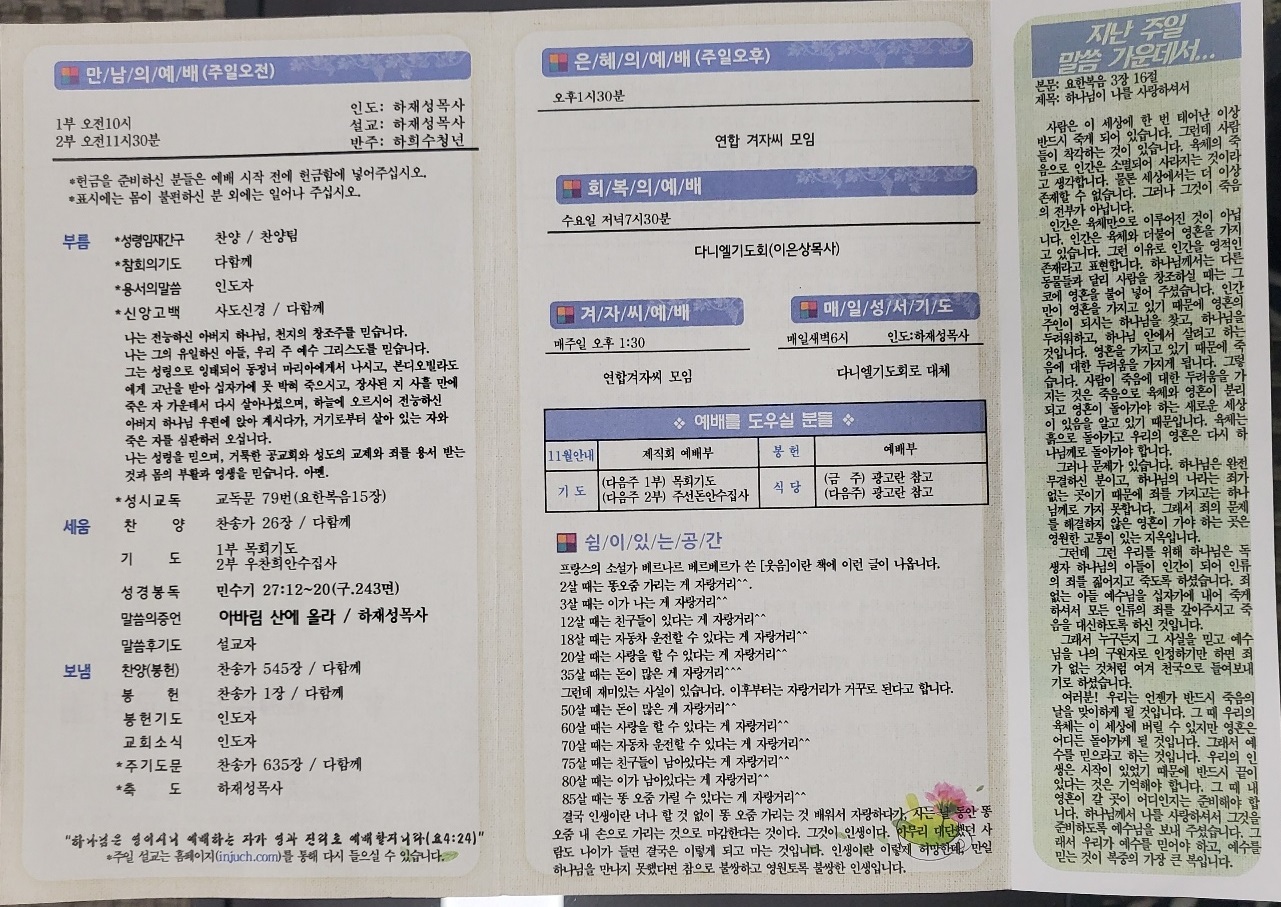 만/남/의/예/배(주일오전)
1부 오전10시
2부 오전11시30분
인도: 하재성목사
설교: 하재성목사
반주: 하희수청년
*헌금을 준비하신 분들은 예배 시작 전에 헌금함에 넣어주십시오.
*표시에는 몸이 불편하신 분 외에는 일어나 주십시오.
부름 *성령임재간구 찬양 / 찬양팀
*참회의기도 다함께
*용서의말씀 인도자
*신앙고백 사도신경 / 다함께
나는 전능하신 아버지 하나님, 천지의 창조주를 믿습니다.
나는 그의 유일하신 아들, 우리 주 예수 그리스도를 믿습니다.
그는 성령으로 잉태되어 동정녀 마리아에게서 나시고, 본디오빌라도
에게 고난을 받아 십자가에 못 박혀 죽으시고, 장사된 지 사흘 만에
죽은 자 가운데서 다시 살아나셨으며, 하늘에 오르시어 전능하신
아버지 하나님 우편에 앉아 계시다가, 거기로부터 살아 있는 자와
죽은 자를 심판하러 오십니다.
나는 성령을 믿으며, 거룩한 공교회와 성도의 교제와 죄를 용서 받는
것과 몸의 부활과 영생을 믿습니다. 아멘.
*성시교독 교독문 79번(요한복음15장)
세움 찬 양 찬송가 26장 / 다함께
기 도 1부 목회기도
2부 우찬희안수집사
성경봉독 민수기 27:12~20(구.243면)
말씀의증언 아바림 산에 올라 / 하재성목사
말씀후기도 설교자
보냄 찬양(봉헌) 찬송가 545장 / 다함께
봉 헌 찬송가 1장 / 다함께
봉헌기도 인도자
교회소식 인도자
*주기도문 찬송가 635장 / 다함께
*축 도 하재성목사
"하나님은 영이시니 예배하는 자가 영과 진리로 예배할지니라(요4:24)"
*주일 설교는 홈페이지(injuch.com)를 통해 다시 들으실 수 있습니다.
은/혜/의/예/배(주일오후)
오후1시30분
연합 겨자씨 모임
회/복/의/예/배
수요일 저녁7시30분
다니엘기도회(이은상목사)
겨/자/씨/예/배
매주일 오후 1:30
연합겨자씨 모임
매/일/성/서/기/도
매일새벽6시 인도:하재성목사
다니엘기도회로 대체
❖ 예배를 도우실 분들 ❖
11월안내 제직회 예배부 봉 헌 예배부
기 도 (다음주 1부) 목회기도
(다음주 2부) 주선돈안수집사
식 당 (금 주) 광고란 참고
(다음주) 광고란 참고
쉼/이/있/는/공/간
프랑스의 소설가 베르나르 베르베르가 쓴 [웃음]이란 책에 이런 글이 나옵니다.
2살 때는 똥오줌 가리는 게 자랑거리^^.
3살 때는 이가 나는 게 자랑거리^^
12살 때는 친구들이 있다는 게 자랑거리^^
18살 때는 자동차 운전할 수 있다는 게 자랑거리^^
20살 때는 사랑을 할 수 있다는 게 자랑거리^^
35살 때는 돈이 많은 게 자랑거리^^^
그런데 재미있는 사실이 있습니다. 이후부터는 자랑거리가 거꾸로 된다고 합니다.
50살 때는 돈이 많은 게 자랑거리^^
60살 때는 사랑을 할 수 있다는 게 자랑거리^^
70살 때는 자동차 운전할 수 있다는 게 자랑거리^^
75살 때는 친구들이 남아있다는 게 자랑거리^^
80살 때는 이가 남아있다는 게 자랑거리^^
85살 때는 똥 오줌 가릴 수 있다는 게 자랑거리^^
결국 인생이란 너나 할 것 없이 똥 오줌 가리는 것 배워서 자랑하다가, 사는 날 동안 똥
오줌 내 손으로 가리는 것으로 마감한다는 것이다. 그것이 인생이다. 아무리 대단했던 사
람도 나이가 들면 결국은 이렇게 되고 마는 것입니다. 인생이란 이렇게 허망한데, 만일
하나님을 만나지 못했다면 참으로 불쌍하고 영원토록 불쌍한 인생입니다.
지난 주일
말씀 가운데서...
본문: 요한복음 3장 16절
제목: 하나님이 나를 사랑하셔서
사람은 이 세상에 한 번 태어난 이상
반드시 죽게 되어 있습니다. 그런데 사람
들이 착각하는 것이 있습니다. 육체의 죽
음으로 인간은 소멸되어 사라지는 것이라
고 생각합니다. 물론 세상에서는 더 이상
존재할 수 없습니다. 그러나 그것이 죽음
의 전부가 아닙니다.
인간은 육체만으로 이루어진 것이 아닙
니다. 인간은 육체와 더불어 영혼을 가지
고 있습니다. 그런 이유로 인간을 영적인
존재라고 표현합니다. 하나님께서는 다른
동물들과 달리 사람을 창조하실 때는 그
코에 영혼을 불어 넣어 주셨습니다. 인간
만이 영혼을 가지고 있기 때문에 영혼의
주인이 되시는 하나님을 찾고, 하나님을
두려워하고, 하나님 안에서 살려고 하는
것입니다. 영혼을 가지고 있기 때문에 죽
음에 대한 두려움을 가지게 됩니다. 그렇
습니다. 사람이 죽음에 대한 두려움을 가
지는 것은 죽음으로 육체와 영혼이 분리
되고 영혼이 돌아가야 하는 새로운 세상
이 있음을 알고 있기 때문입니다. 육체는
흙으로 돌아가고 우리의 영혼은 다시 하
나님께로 돌아가야 합니다.
그러나 문제가 있습니다. 하나님은 완전
무결하신 분이고, 하나님의 나라는 죄가
없는 곳이기 때문에 죄를 가지고는 하나
님께로 가지 못합니다. 그래서 죄의 문제
를 해결하지 않은 영혼이 가야 하는 곳은
영원한 고통이 있는 지옥입니다.
그런데 그런 우리를 위해 하나님은 독
생자 하나님의 아들이 인간이 되어 인류
의 죄를 짊어지고 죽도록 하셨습니다. 죄
없는 아들 예수님을 십자가에 내어 죽게
하셔서 모든 인류의 죄를 갚아주시고 죽
음을 대신하도록 하신 것입니다.
그래서 누구든지 그 사실을 믿고 예수
님을 나의 구원자로 인정하기만 하면 죄
가 없는 것처럼 여겨 천국으로 들여보내
기로 하셨습니다.
여러분! 우리는 언젠가 반드시 죽음의
날을 맞이하게 될 것입니다. 그 때 우리의
육체는 이 세상에 버릴 수 있지만 영혼은
어디든 돌아가게 될 것입니다. 그래서 예
수를 믿으라고 하는 것입니다. 우리의 인
생은 시작이 있었기 때문에 반드시 끝이
있다는 것은 기억해야 합니다. 그 때 내
영혼이 갈 곳이 어디인지는 준비해야 합
니다. 하나님께서 나를 사랑하셔서 그것을
준비하도록 예수님을 보내 주셨습니다. 그
래서 우리가 예수를 믿어야 하고, 예수를
믿는 것이 복중의 가장 큰 복입니다.